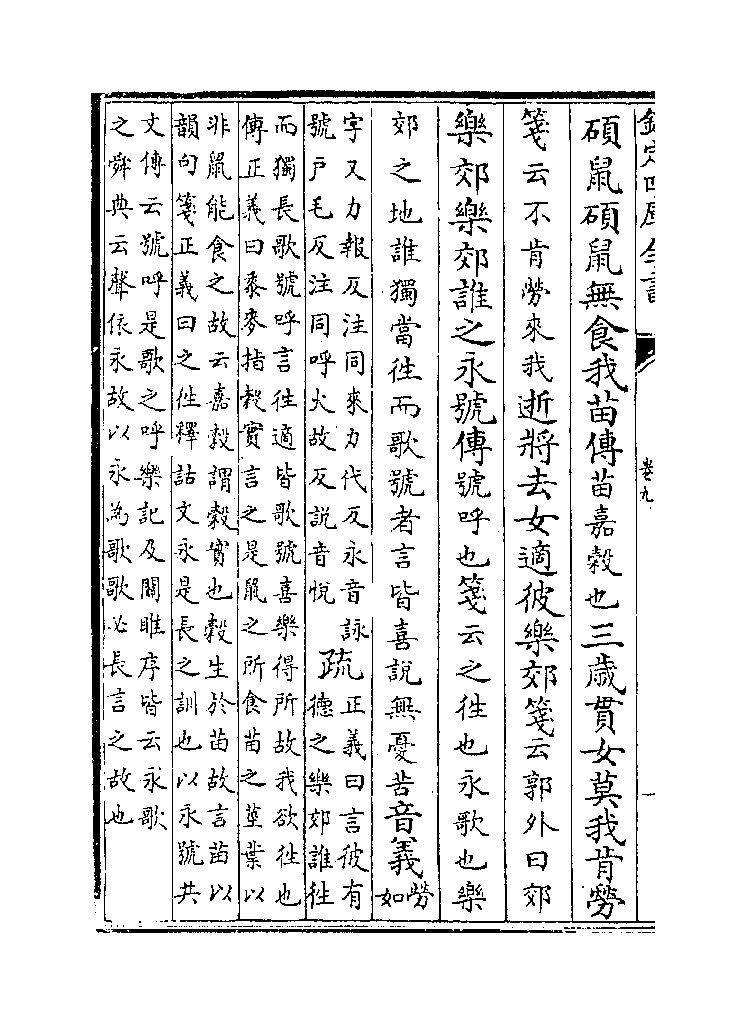 欽定四庫全書
卷九
碩鼠碩鼠無食我苗傳苗嘉穀也三歲貫女莫我肯勞
箋云不肯勞來我逝將去女適彼樂郊箋云郭外曰郊
樂郊樂郊誰之永號傳號呼也箋云之往也永歌也樂
郊之地誰獨當往而歌號者言皆喜說無憂苦音義勞如
字又力報反注同來力代反永音詠
號戶毛反注同呼火故反說音悅
疏
正義曰言彼有
德之樂郊誰往
而獨長歌號呼言往適皆歌號喜樂得所故我欲往也
傳正義曰黍麥指穀實言之是鼠之所食苗之莖葉以
非鼠能食之故云嘉穀謂穀實也穀生於苗故言苗以
韻句箋正義曰之往釋詁文永是長之訓也以永號共
文傳云號呼是歌之呼樂記及關睢序皆云永歌
之舜典云聲依永故以永為歌歌必長言之故也